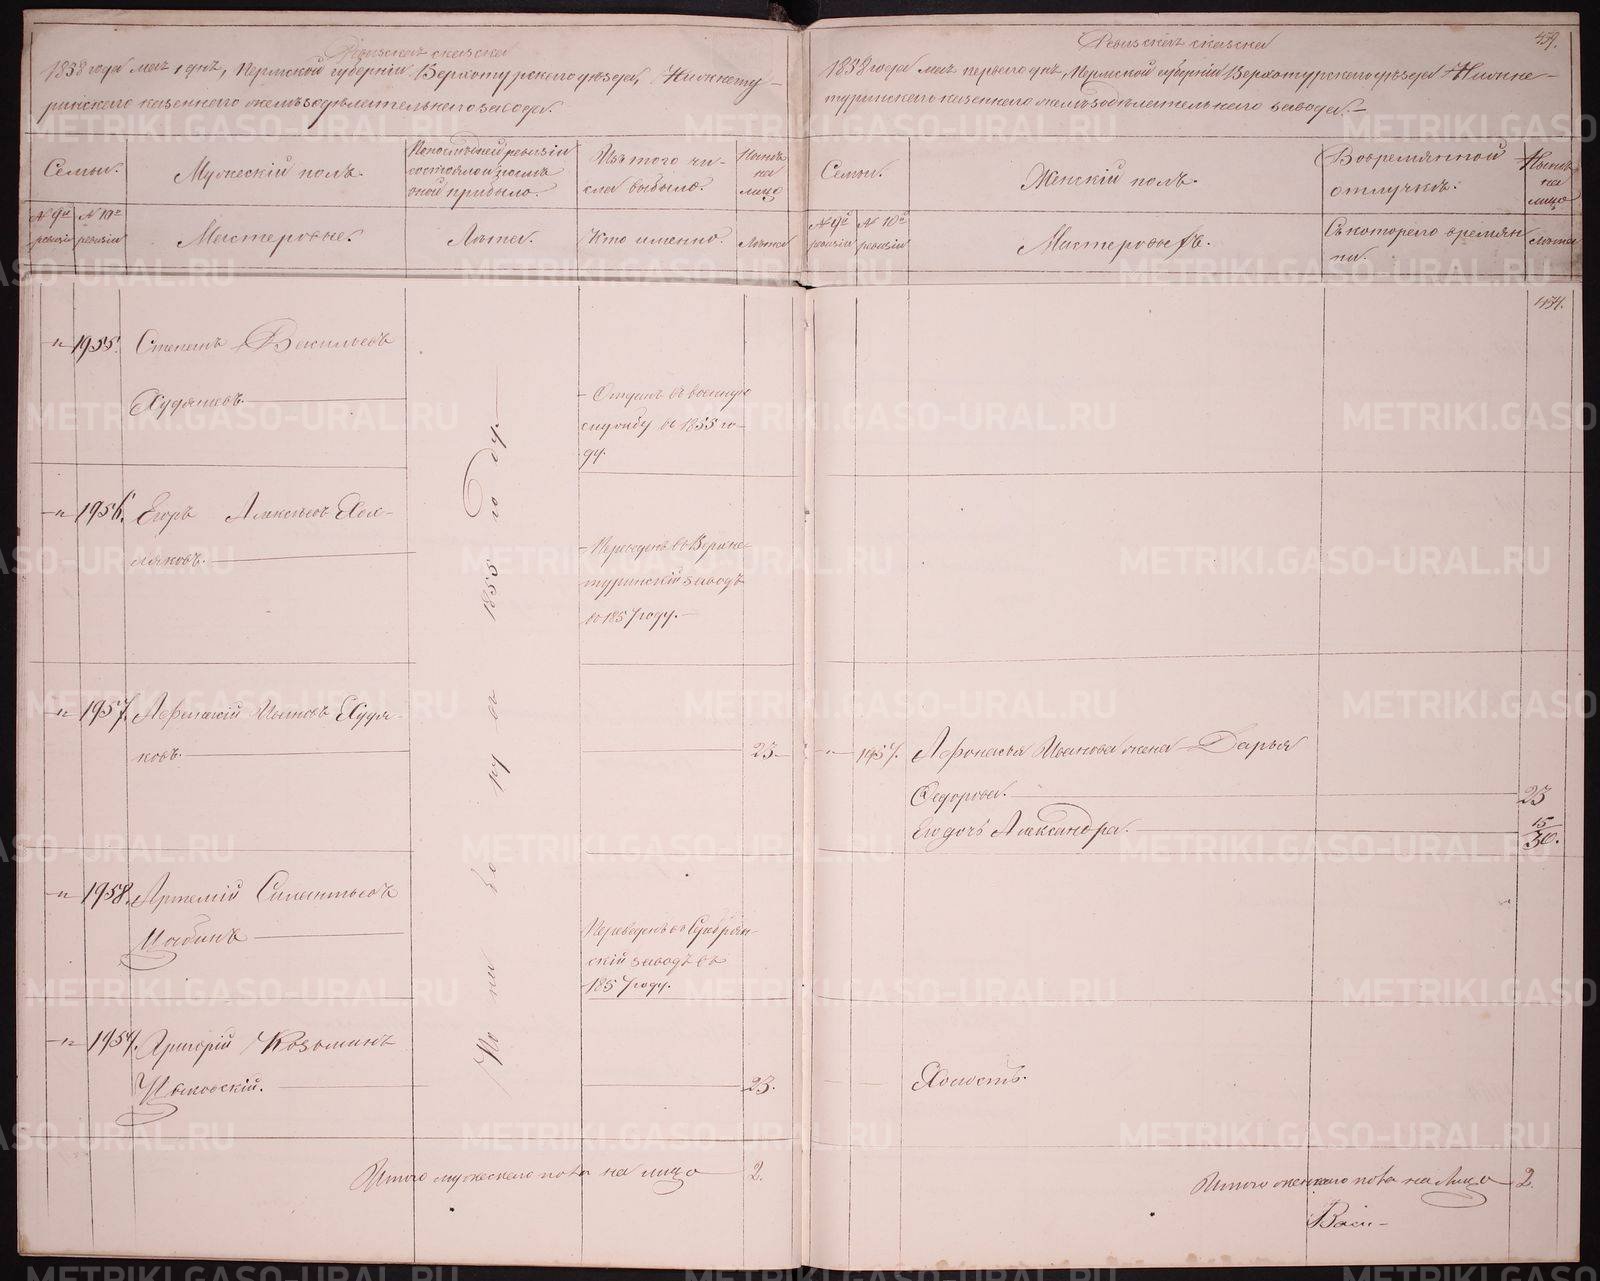 Ревизская сказка
1858 года мая 1 дня, Пермской губернии Верхотурского уезда, Нижнету-
ринского казеннаго железоделательнаго завода.
Семьи.
Мужеский полъ.
По последней ревизии
состояло и после
оной прибыло.
Изъ того чи-
сла выбыло.
Ныне
на
лицо
№ 9й ревизии
№ 10й ревизии
Мастеровые.
Лета.
Кто именно.
Лета
1955.
Степанъ Васильевъ
Худяковъ.
Отданъ въ военную
службу въ 1855 го-
ду.
1956.
Егоръ Алексеевъ Хол-
мяковъ.
Переведенъ въ Верхне-
туринский заводъ
въ 1857 году.
1957.
Афонасий Ивановъ Худя-
ковъ.
23
1958.
Артемий Силантьевъ
Переведенъ въ Серебрян-
ский заводъ въ
1857 году.
1959.
Григорий Козьминъ
23.
1855 году.
Итого мужескаго пола на лицо 2.
Ревизская сказка
459.
1858 года мая перваго дня, Пермской губернии Верхотурскаго уезда Нижне-
туринскаго казеннаго железоделательнаго завода.
Семьи.
Женский полъ.
Во временной
отлучке.
Ныне
на
лицо
№ 9й ревизии
№ 10й ревизии
Мастеровые.
Съ котораго времяни.
Лета
1957.
Афонасья Иванова жена Дарья
Федорова.
23
Его дочь Александра.
15/30.
Холостъ.
Итого женскаго пола на лицо 2.
Васи-
METRIKI.GASO-URAL.RU